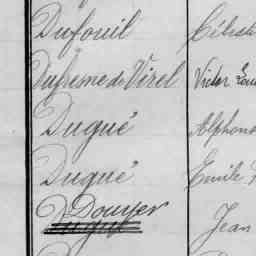 Dufouil Célest
Dufresne de Virel Victor Lou
Dugué Alphons
Dugué Emile
Douyer
Dugué Jean